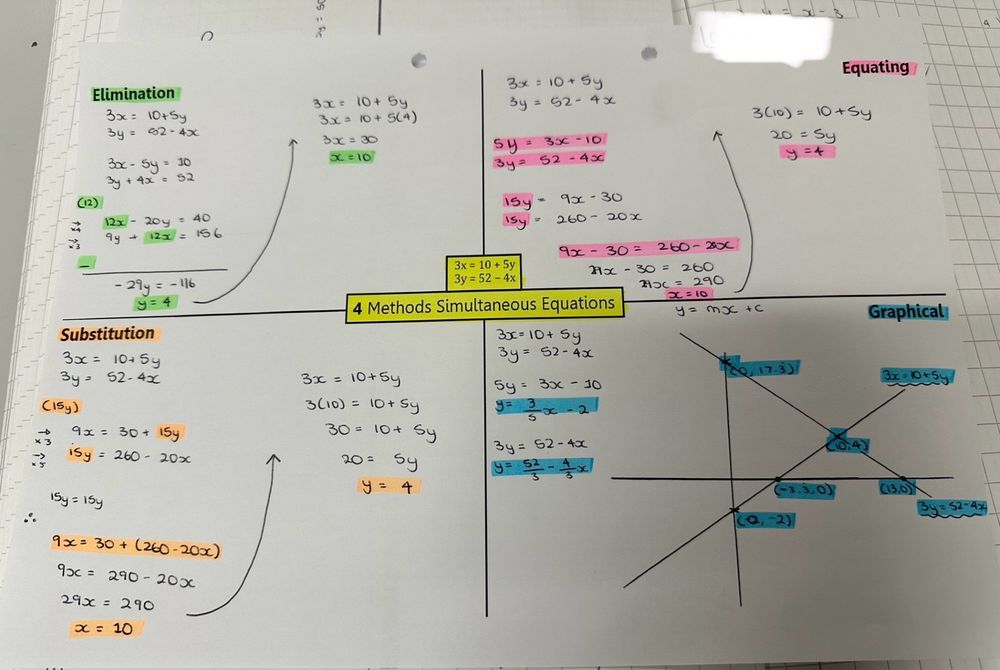 Elimination
3x = 10+5y
3y = 52-4x
3x - 5y = 10
3y + 4x = 52
(12)
→ x4 12x - 20y = 40
→ x3 9y + 12x = 156
−
-29y = -116
y = 4
3x = 10 + 5y
3x = 10 + 5(4)
3x = 30
x = 10
Equating
3x = 10 + 5y
3y = 52 - 4x
5y = 3x - 10
3y = 52 - 4x
15y = 9x - 30
15y = 260 - 20x
9x - 30 = 260 - 20x
29x - 30 = 260
29x = 290
x = 10
3(10) = 10 + 5y
20 = 5y
y = 4
3x = 10 + 5y
3y = 52 − 4x
4 Methods Simultaneous Equations
Substitution
3x = 10+5y
3y = 52-4x
(15y)
→ x3 9x = 30 + 15y
→ x5 15y = 260 - 20x
15y = 15y
∴
9x = 30 + (260-20x)
9x = 290 - 20x
29x = 290
x = 10
3x = 10+5y
3(10) = 10+5y
30 = 10 + 5y
20 = 5y
y = 4
Graphical
y = mx + c
3x = 10 + 5y
3y = 52 - 4x
5y = 3x - 10
y = 3/5 x - 2
3y = 52 - 4x
y = 52/3 - 4/3 x
(0, 17.3)
3x = 10 + 5y
(10, 4)
(-3.3, 0)
(13, 0)
3y = 52 - 4x
(0, -2)